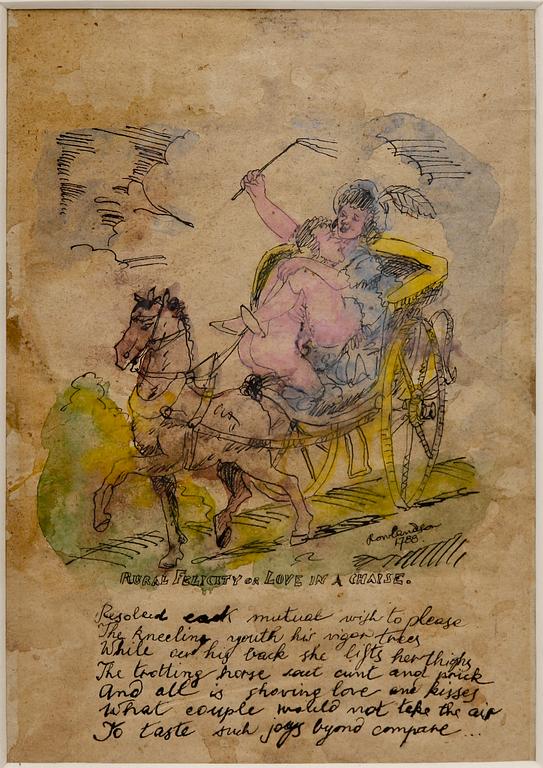 Rowlandson
1788.
RURAL FELICITY OR LOVE IN A CHAISE.
Resolved each mutual wish to please
The kneeling youth his vigor tries
While o'er his back she lifts her thighs
The trotting horse cunt and prick
And all is shoving love and kisses
What couple would not take the air
To taste such joys byond compare...